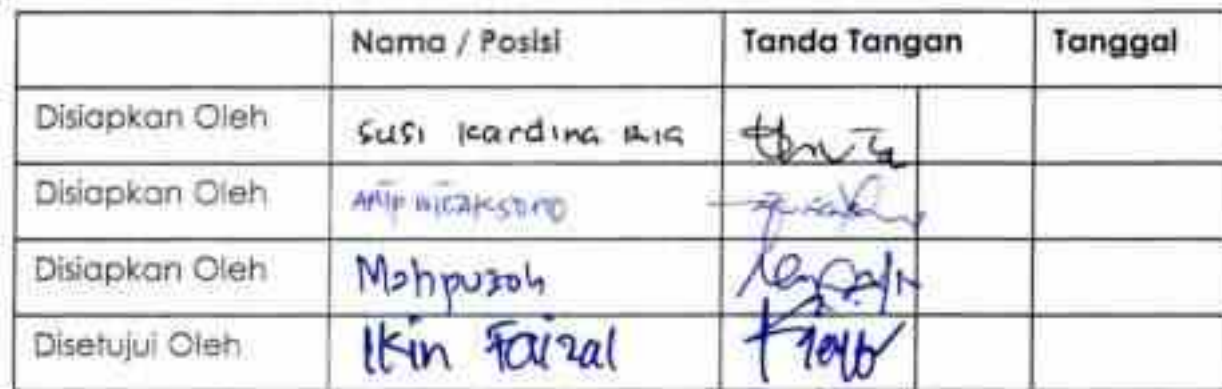 Nama / Posisi Tanda Tangan Tanggal
Disiapkan Oleh Susi Kardina
Disiapkan Oleh Wicaksono
Disiapkan Oleh Mahpuzoh
Disetujui Oleh Ikin Faizal